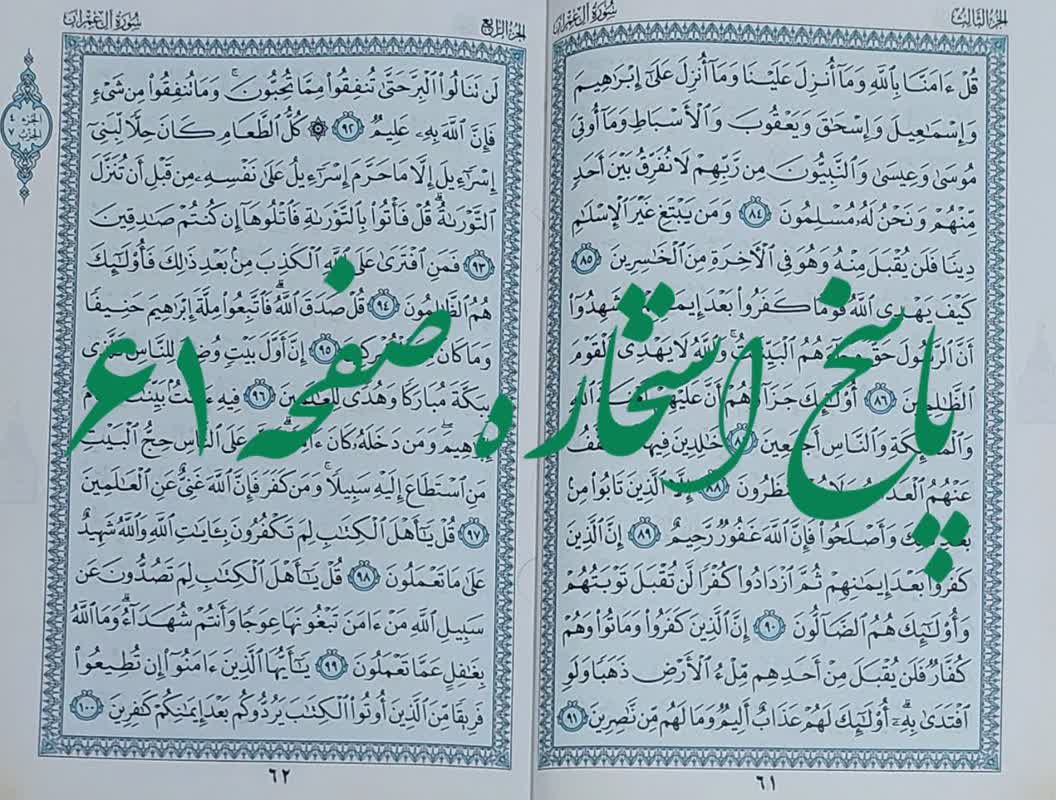 الجزء الثالث
سورة آل عمران
قُلْ ءَامَنَّا بِٱللَّهِ وَمَآ أُنزِلَ عَلَيْنَا وَمَآ أُنزِلَ عَلَىٰٓ إِبْرَٰهِيمَ
وَإِسْمَٰعِيلَ وَإِسْحَٰقَ وَيَعْقُوبَ وَٱلْأَسْبَاطِ وَمَآ أُوتِىَ
مُوسَىٰ وَعِيسَىٰ وَٱلنَّبِيُّونَ مِن رَّبِّهِمْ لَا نُفَرِّقُ بَيْنَ أَحَدٍ
مِّنْهُمْ وَنَحْنُ لَهُۥ مُسْلِمُونَ ٨٤ وَمَن يَبْتَغِ غَيْرَ ٱلْإِسْلَٰمِ
دِينًا فَلَن يُقْبَلَ مِنْهُ وَهُوَ فِى ٱلْءَاخِرَةِ مِنَ ٱلْخَٰسِرِينَ ٨٥
كَيْفَ يَهْدِى ٱللَّهُ قَوْمًا كَفَرُوا۟ بَعْدَ إِيمَٰنِهِمْ وَشَهِدُوٓا۟
أَنَّ ٱلرَّسُولَ حَقٌّ وَجَآءَهُمُ ٱلْبَيِّنَٰتُ ۚ وَٱللَّهُ لَا يَهْدِى ٱلْقَوْمَ
ٱلظَّٰلِمِينَ ٨٦ أُو۟لَٰٓئِكَ جَزَآؤُهُمْ أَنَّ عَلَيْهِمْ لَعْنَةَ ٱللَّهِ
وَٱلْمَلَٰٓئِكَةِ وَٱلنَّاسِ أَجْمَعِينَ ٨٧ خَٰلِدِينَ فِيهَا لَا يُخَفَّفُ
عَنْهُمُ ٱلْعَذَابُ وَلَا هُمْ يُنظَرُونَ ٨٨ إِلَّا ٱلَّذِينَ تَابُوا۟ مِنۢ
بَعْدِ ذَٰلِكَ وَأَصْلَحُوا۟ فَإِنَّ ٱللَّهَ غَفُورٌ رَّحِيمٌ ٨٩ إِنَّ ٱلَّذِينَ
كَفَرُوا۟ بَعْدَ إِيمَٰنِهِمْ ثُمَّ ٱزْدَادُوا۟ كُفْرًا لَّن تُقْبَلَ تَوْبَتُهُمْ
وَأُو۟لَٰٓئِكَ هُمُ ٱلضَّآلُّونَ ٩٠ إِنَّ ٱلَّذِينَ كَفَرُوا۟ وَمَاتُوا۟ وَهُمْ
كُفَّارٌ فَلَن يُقْبَلَ مِنْ أَحَدِهِم مِّلْءُ ٱلْأَرْضِ ذَهَبًا وَلَوِ
ٱفْتَدَىٰ بِهِۦٓ ۗ أُو۟لَٰٓئِكَ لَهُمْ عَذَابٌ أَلِيمٌ وَمَا لَهُم مِّن نَّٰصِرِينَ ٩١
٦١
الجزء الرابع
سورة آل عمران
لَن تَنَالُوا۟ ٱلْبِرَّ حَتَّىٰ تُنفِقُوا۟ مِمَّا تُحِبُّونَ ۚ وَمَا تُنفِقُوا۟ مِن شَىْءٍ
فَإِنَّ ٱللَّهَ بِهِۦ عَلِيمٌ ٩٢ ۞ كُلُّ ٱلطَّعَامِ كَانَ حِلًّا لِّبَنِىٓ
إِسْرَٰٓءِيلَ إِلَّا مَا حَرَّمَ إِسْرَٰٓءِيلُ عَلَىٰ نَفْسِهِۦ مِن قَبْلِ أَن تُنَزَّلَ
ٱلتَّوْرَىٰةُ ۗ قُلْ فَأْتُوا۟ بِٱلتَّوْرَىٰةِ فَٱتْلُوهَآ إِن كُنتُمْ صَٰدِقِينَ
٩٣ فَمَنِ ٱفْتَرَىٰ عَلَى ٱللَّهِ ٱلْكَذِبَ مِنۢ بَعْدِ ذَٰلِكَ فَأُو۟لَٰٓئِكَ
هُمُ ٱلظَّٰلِمُونَ ٩٤ قُلْ صَدَقَ ٱللَّهُ ۗ فَٱتَّبِعُوا۟ مِلَّةَ إِبْرَٰهِيمَ حَنِيفًا
وَمَا كَانَ مِنَ ٱلْمُشْرِكِينَ ٩٥ إِنَّ أَوَّلَ بَيْتٍ وُضِعَ لِلنَّاسِ لَلَّذِى
بِبَكَّةَ مُبَارَكًا وَهُدًى لِّلْعَٰلَمِينَ ٩٦ فِيهِ ءَايَٰتٌۢ بَيِّنَٰتٌ مَّقَامُ
إِبْرَٰهِيمَ ۖ وَمَن دَخَلَهُۥ كَانَ ءَامِنًا ۗ وَلِلَّهِ عَلَى ٱلنَّاسِ حِجُّ ٱلْبَيْتِ
مَنِ ٱسْتَطَاعَ إِلَيْهِ سَبِيلًا ۚ وَمَن كَفَرَ فَإِنَّ ٱللَّهَ غَنِىٌّ عَنِ ٱلْعَٰلَمِينَ
٩٧ قُلْ يَٰٓأَهْلَ ٱلْكِتَٰبِ لِمَ تَكْفُرُونَ بِـَٔايَٰتِ ٱللَّهِ وَٱللَّهُ شَهِيدٌ
عَلَىٰ مَا تَعْمَلُونَ ٩٨ قُلْ يَٰٓأَهْلَ ٱلْكِتَٰبِ لِمَ تَصُدُّونَ عَن
سَبِيلِ ٱللَّهِ مَنْ ءَامَنَ تَبْغُونَهَا عِوَجًا وَأَنتُمْ شُهَدَآءُ ۗ وَمَا ٱللَّهُ
بِغَٰفِلٍ عَمَّا تَعْمَلُونَ ٩٩ يَٰٓأَيُّهَا ٱلَّذِينَ ءَامَنُوٓا۟ إِن تُطِيعُوا۟
فَرِيقًا مِّنَ ٱلَّذِينَ أُوتُوا۟ ٱلْكِتَٰبَ يَرُدُّوكُم بَعْدَ إِيمَٰنِكُمْ كَٰفِرِينَ ١٠٠
٦٢
الجزء ٤
الحزب ٧
پاسخ استخاره صفحه ۶۱